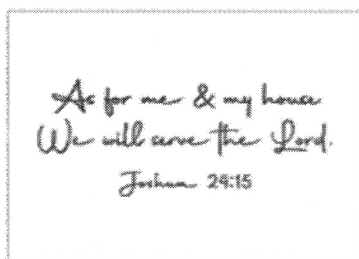 As for me & my house
We will serve the Lord.
Joshua 24:15